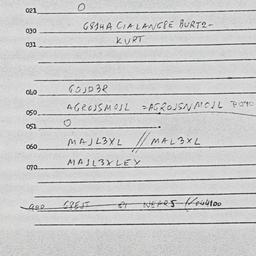 021 0
030 G814A CIALANGSE BURT2-
031 KURT
040 GOJD3R
050 AGROJSMOJL =AGROJSNMOJL
051 0
060 MAJL3XL // MAL3XL
070 MAJL3XLEY
900